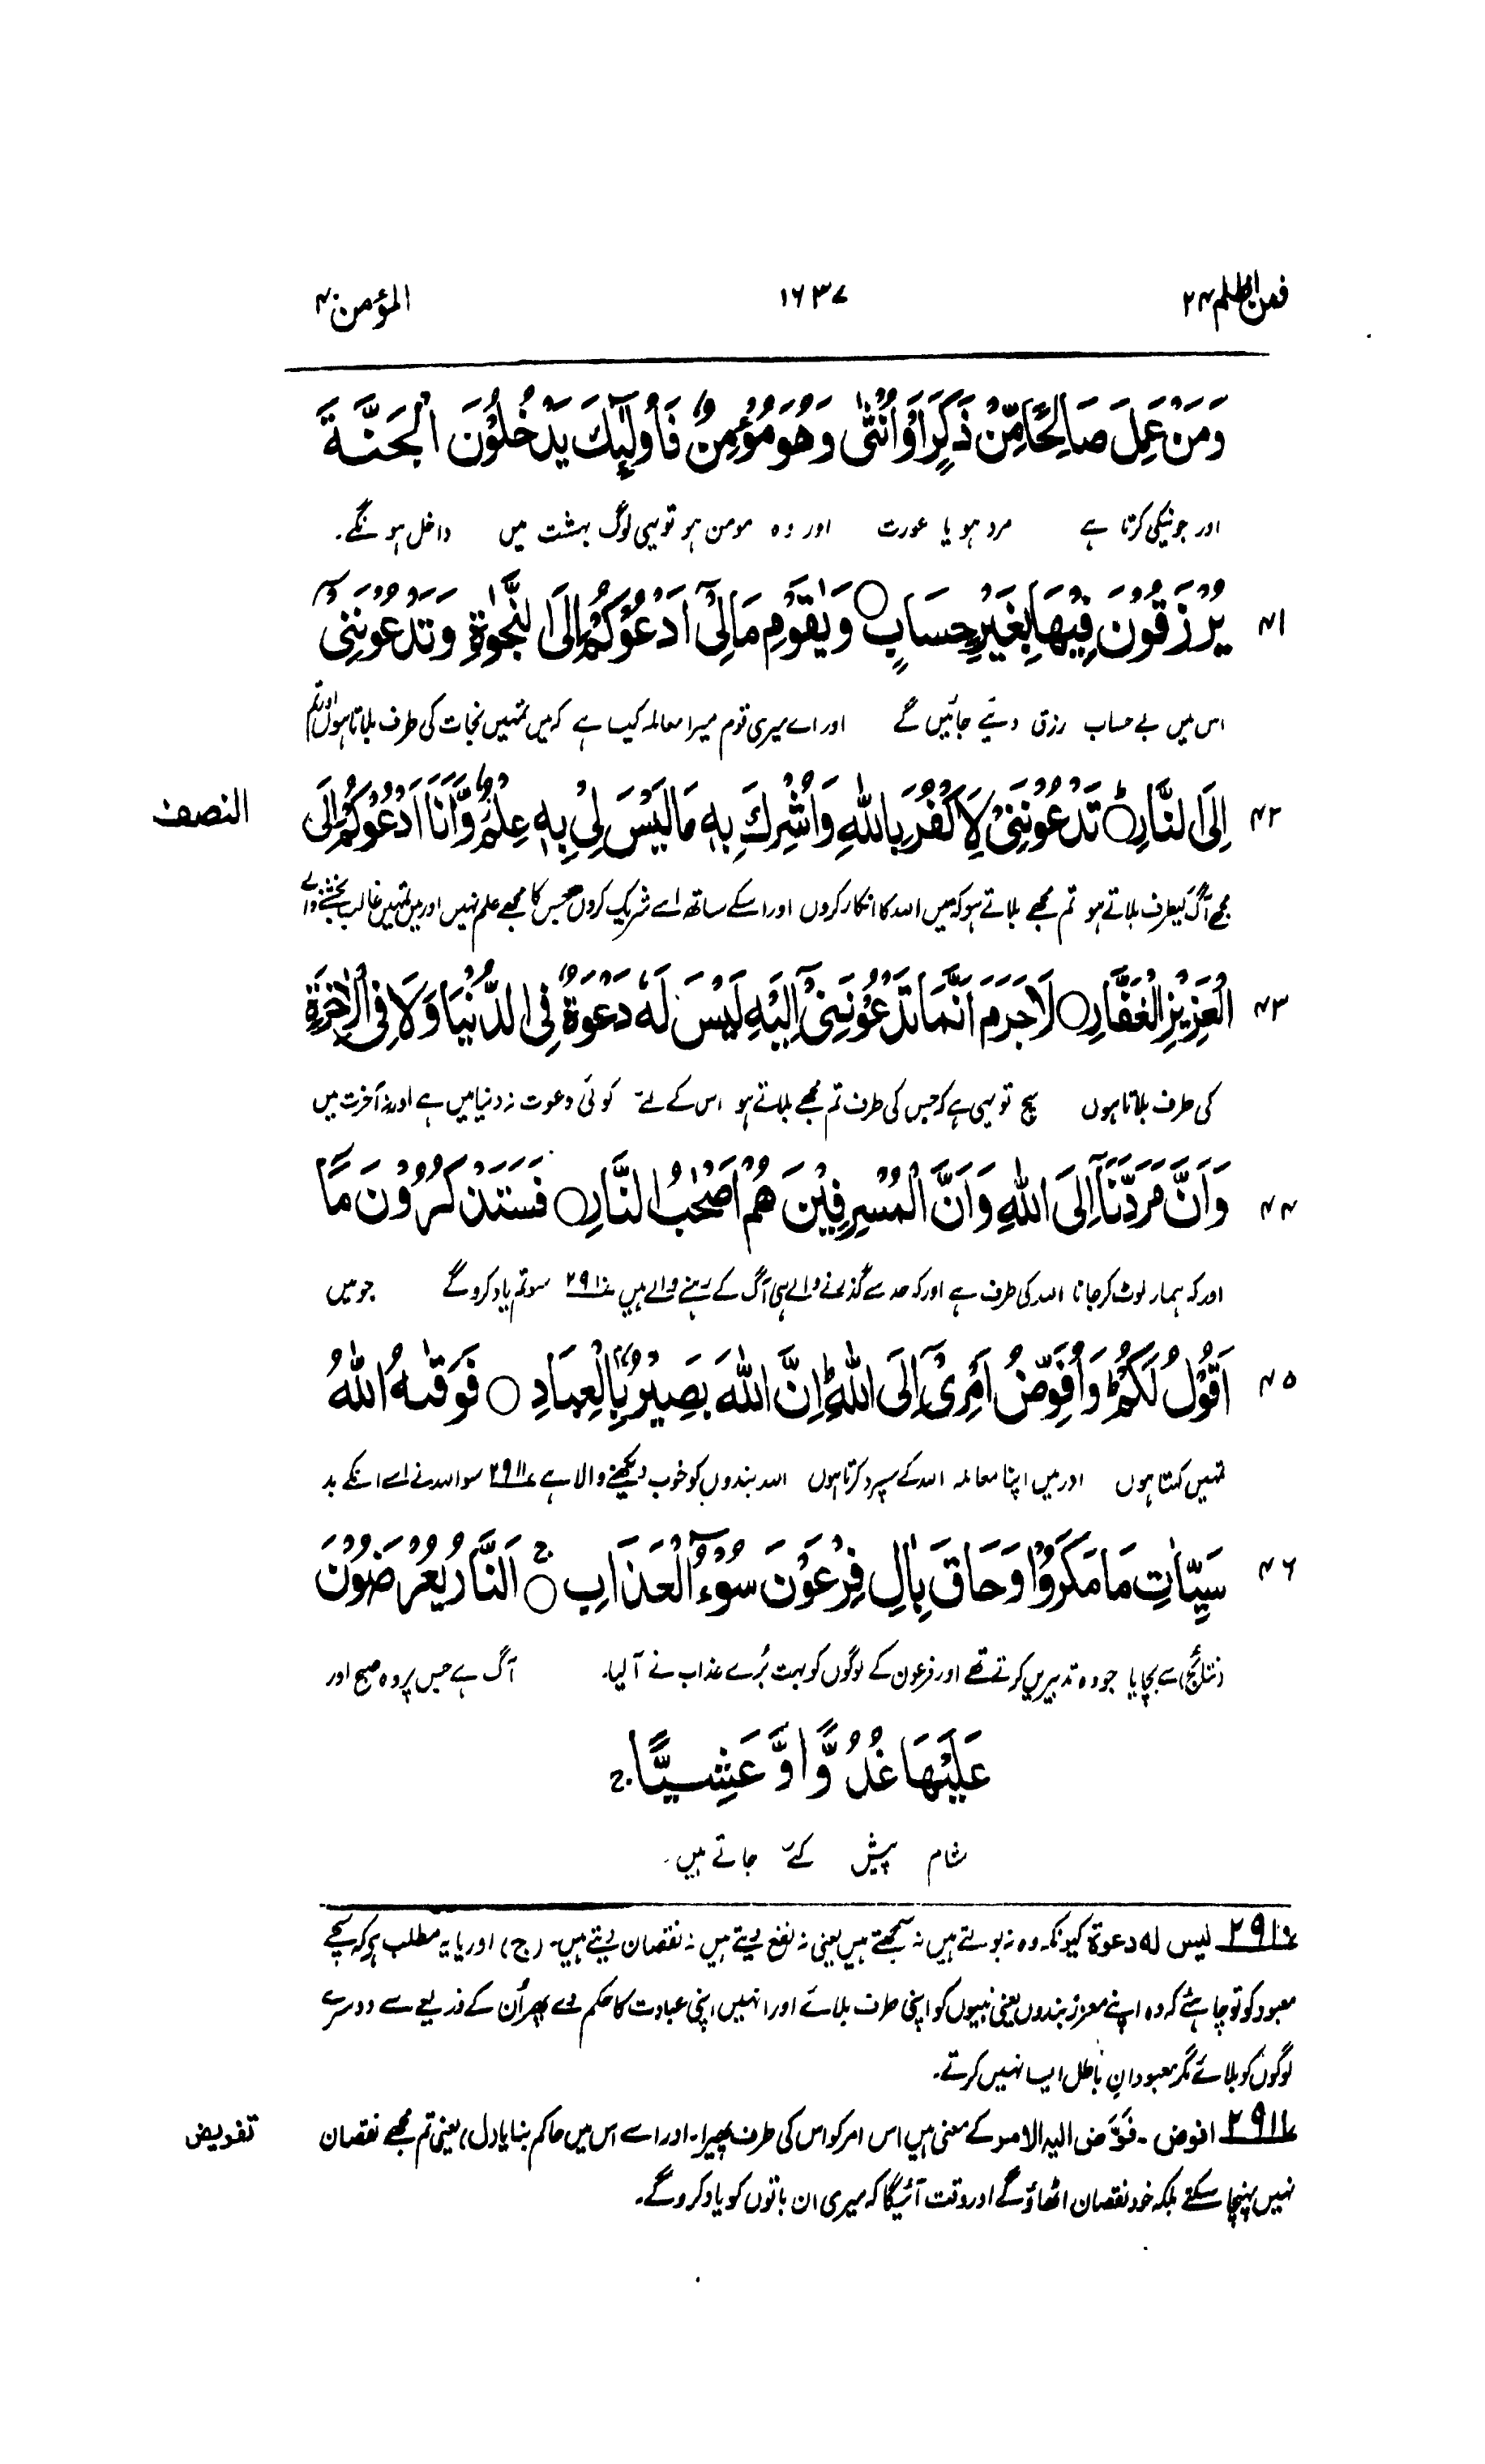 فمن اظلم ۲۴ ۱۶۳۷ المؤمن ۴۰
وَمَنْ عَمِلَ صَالِحًا مِّنْ ذَكَرٍ اَوْ اُنْثٰى وَهُوَ مُؤْمِنٌ فَاُولٰٓئِكَ يَدْخُلُوْنَ الْجَنَّةَ
اور جو نیکی کرتا ہے مرد ہو یا عورت اور وہ مومن ہو تو یہی لوگ بہشت میں داخل ہونگے۔
۴۱ يُرْزَقُوْنَ فِيْهَا بِغَيْرِ حِسَابٍ ○ وَيٰقَوْمِ مَا لِيْٓ اَدْعُوْكُمْ اِلَى النَّجٰوةِ وَتَدْعُوْنَنِيْٓ
اس میں بے حساب رزق دئیے جائیں گے اور اے میری قوم میرا معاملہ کیسا ہے کہ میں تمہیں نجات کی طرف بلاتا ہوں اور تم
۴۲ اِلَى النَّارِ ○ تَدْعُوْنَنِيْ لِاَكْفُرَ بِاللّٰهِ وَاُشْرِكَ بِهٖ مَا لَيْسَ لِيْ بِهٖ عِلْمٌ وَّاَنَا اَدْعُوْكُمْ اِلَى النصف
مجھے آگ کیطرف بلاتے ہو تم مجھے بلاتے ہو کہ میں اللہ کا انکار کروں اور اسکے ساتھ اسے شریک کروں جس کا مجھے علم نہیں اور میں تمہیں غالب بخشنے والے
۴۳ الْعَزِيْزِ الْغَفَّارِ ○ لَا جَرَمَ اَنَّمَا تَدْعُوْنَنِيْٓ اِلَيْهِ لَيْسَ لَهٗ دَعْوَةٌ فِي الدُّنْيَا وَلَا فِي الْاٰخِرَةِ
کی طرف بلاتا ہوں سچ تو یہی ہے کہ جس کی طرف تم مجھے بلاتے ہو اس کے لئے کوئی دعوت نہ دنیا میں ہے اور نہ آخرت میں
۴۴ وَاَنَّ مَرَدَّنَآ اِلَى اللّٰهِ وَاَنَّ الْمُسْرِفِيْنَ هُمْ اَصْحٰبُ النَّارِ ○ فَسَتَذْكُرُوْنَ مَآ
اور کہ ہمارا لوٹ کر جانا اللہ کی طرف ہے اور کہ حد سے گذرنے والے ہی آگ کے رہنے والے ہیں ۲۹۱۰ سو تم یاد کرو گے جو میں
۴۵ اَقُوْلُ لَكُمْ وَاُفَوِّضُ اَمْرِيْٓ اِلَى اللّٰهِ اِنَّ اللّٰهَ بَصِيْرٌۢ بِالْعِبَادِ ○ فَوَقٰىهُ اللّٰهُ
تمہیں کہتا ہوں اور میں اپنا معاملہ اللہ کے سپرد کرتا ہوں اللہ بندوں کو خوب دیکھنے والا ہے ۲۹۱۱ سو اللہ نے اسے انکے بد
۴۶ سَيِّاٰتِ مَا مَكَرُوْا وَحَاقَ بِاٰلِ فِرْعَوْنَ سُوْٓءُ الْعَذَابِ ○ اَلنَّارُ يُعْرَضُوْنَ
(نتائج) سے بچایا جو وہ تدبیریں کرتے تھے اور فرعون کے لوگوں کو بہت بُرے عذاب نے آ لیا۔ آگ ہے جس پر وہ صبح اور
عَلَيْهَا غُدُوًّا وَّعَشِيًّا ج
شام پیش کئے جاتے ہیں۔
۲۹۱۰ لیس لہ دعوۃ کیونکہ وہ نہ بولتے ہیں نہ سمجھتے ہیں یعنی نہ نفع دیتے ہیں نہ نقصان دیتے ہیں۔ (ج) اور یا یہ مطلب ہے کہ سچے
معبود کو تو چاہئے کہ وہ اپنے معزز بندوں یعنی نبیوں کو اپنی طرف بلائے اور انہیں اپنی عبادت کا حکم دے پھر اُن کے ذریعے سے دوسرے
لوگوں کو بلائے مگر معبودانِ باطل ایسا نہیں کرتے۔
۲۹۱۱ افوض۔ فَوَّضَ الیہ الامر کے معنی ہیں اس امر کو اس کی طرف پھیرا۔ اور اسے اس میں حاکم بنایا (ل) یعنی تم مجھے نقصان تفویض
نہیں پہنچا سکتے بلکہ خود نقصان اٹھاؤ گے اور وقت آئیگا کہ میری ان باتوں کو یاد کرو گے۔